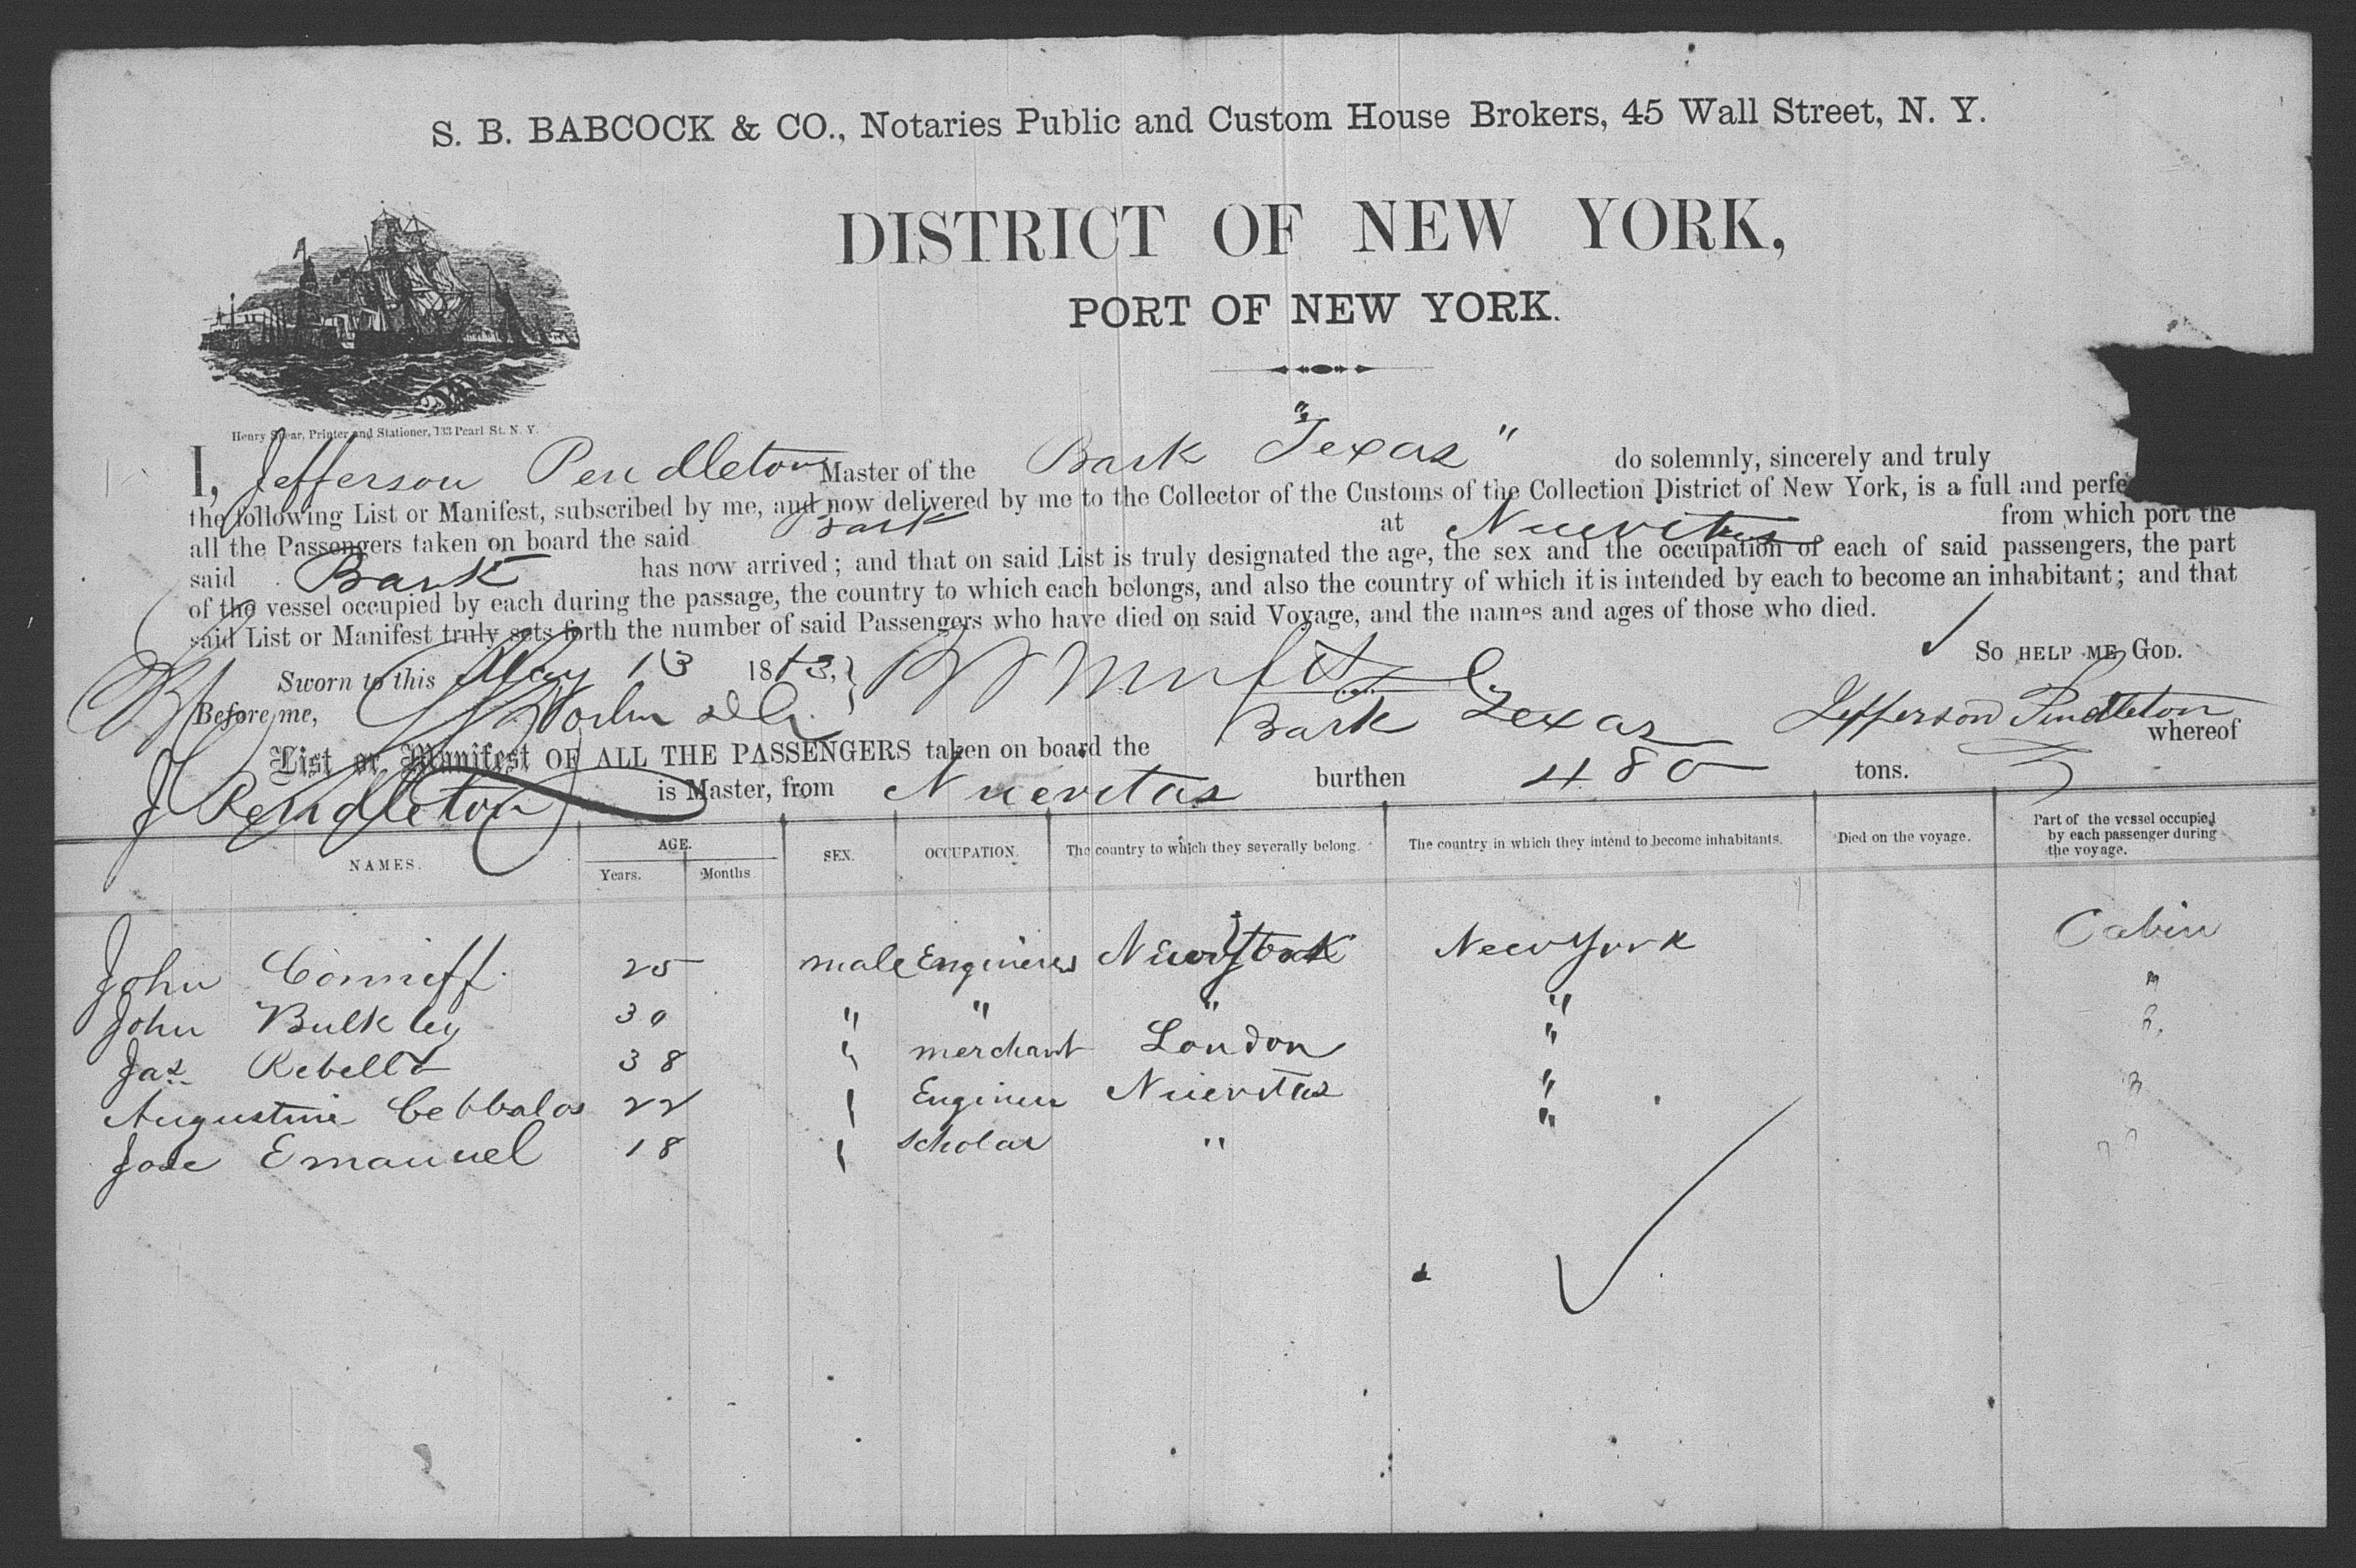 S. B. BABCOCK & CO., Notaries Public and Custom House Brokers, 45 Wall Street, N. Y.
DISTRICT OF NEW YORK,
PORT OF NEW YORK.
Henry Spear, Printer and Stationer, 133 Pearl St. N. Y.
I, Jefferson Pendleton Master of the Bark "Texas" do solemnly, sincerely and truly
the following List or Manifest, subscribed by me, and now delivered by me to the Collector of the Customs of the Collection District of New York, is a full and perfe
all the Passengers taken on board the said Bark at Nuevitas from which port the
said Bark has now arrived; and that on said List is truly designated the age, the sex and the occupation of each of said passengers, the part
of the vessel occupied by each during the passage, the country to which each belongs, and also the country of which it is intended by each to become an inhabitant; and that
said List or Manifest truly sets forth the number of said Passengers who have died on said Voyage, and the names and ages of those who died.
So HELP ME GOD.
Sworn to this May 13 1873.
Before me,
Jefferson Pendleton
List or Manifest OF ALL THE PASSENGERS taken on board the Bark Texas whereof
J Pendleton is Master, from Nuevitas burthen 480 tons.
NAMES. AGE. Years. Months SEX. OCCUPATION. The country to which they severally belong. The country in which they intend to become inhabitants. Died on the voyage. Part of the vessel occupied by each passenger during the voyage.
John Conniff 25 male Engineer New York New York Cabin
John Bulkley 30 " " " " "
Jas. Rebello 38 " merchant London " "
Augustine Cebbalos 22 " Engineer Nuevitas " "
Jose Emanuel 18 " Scholar " " "